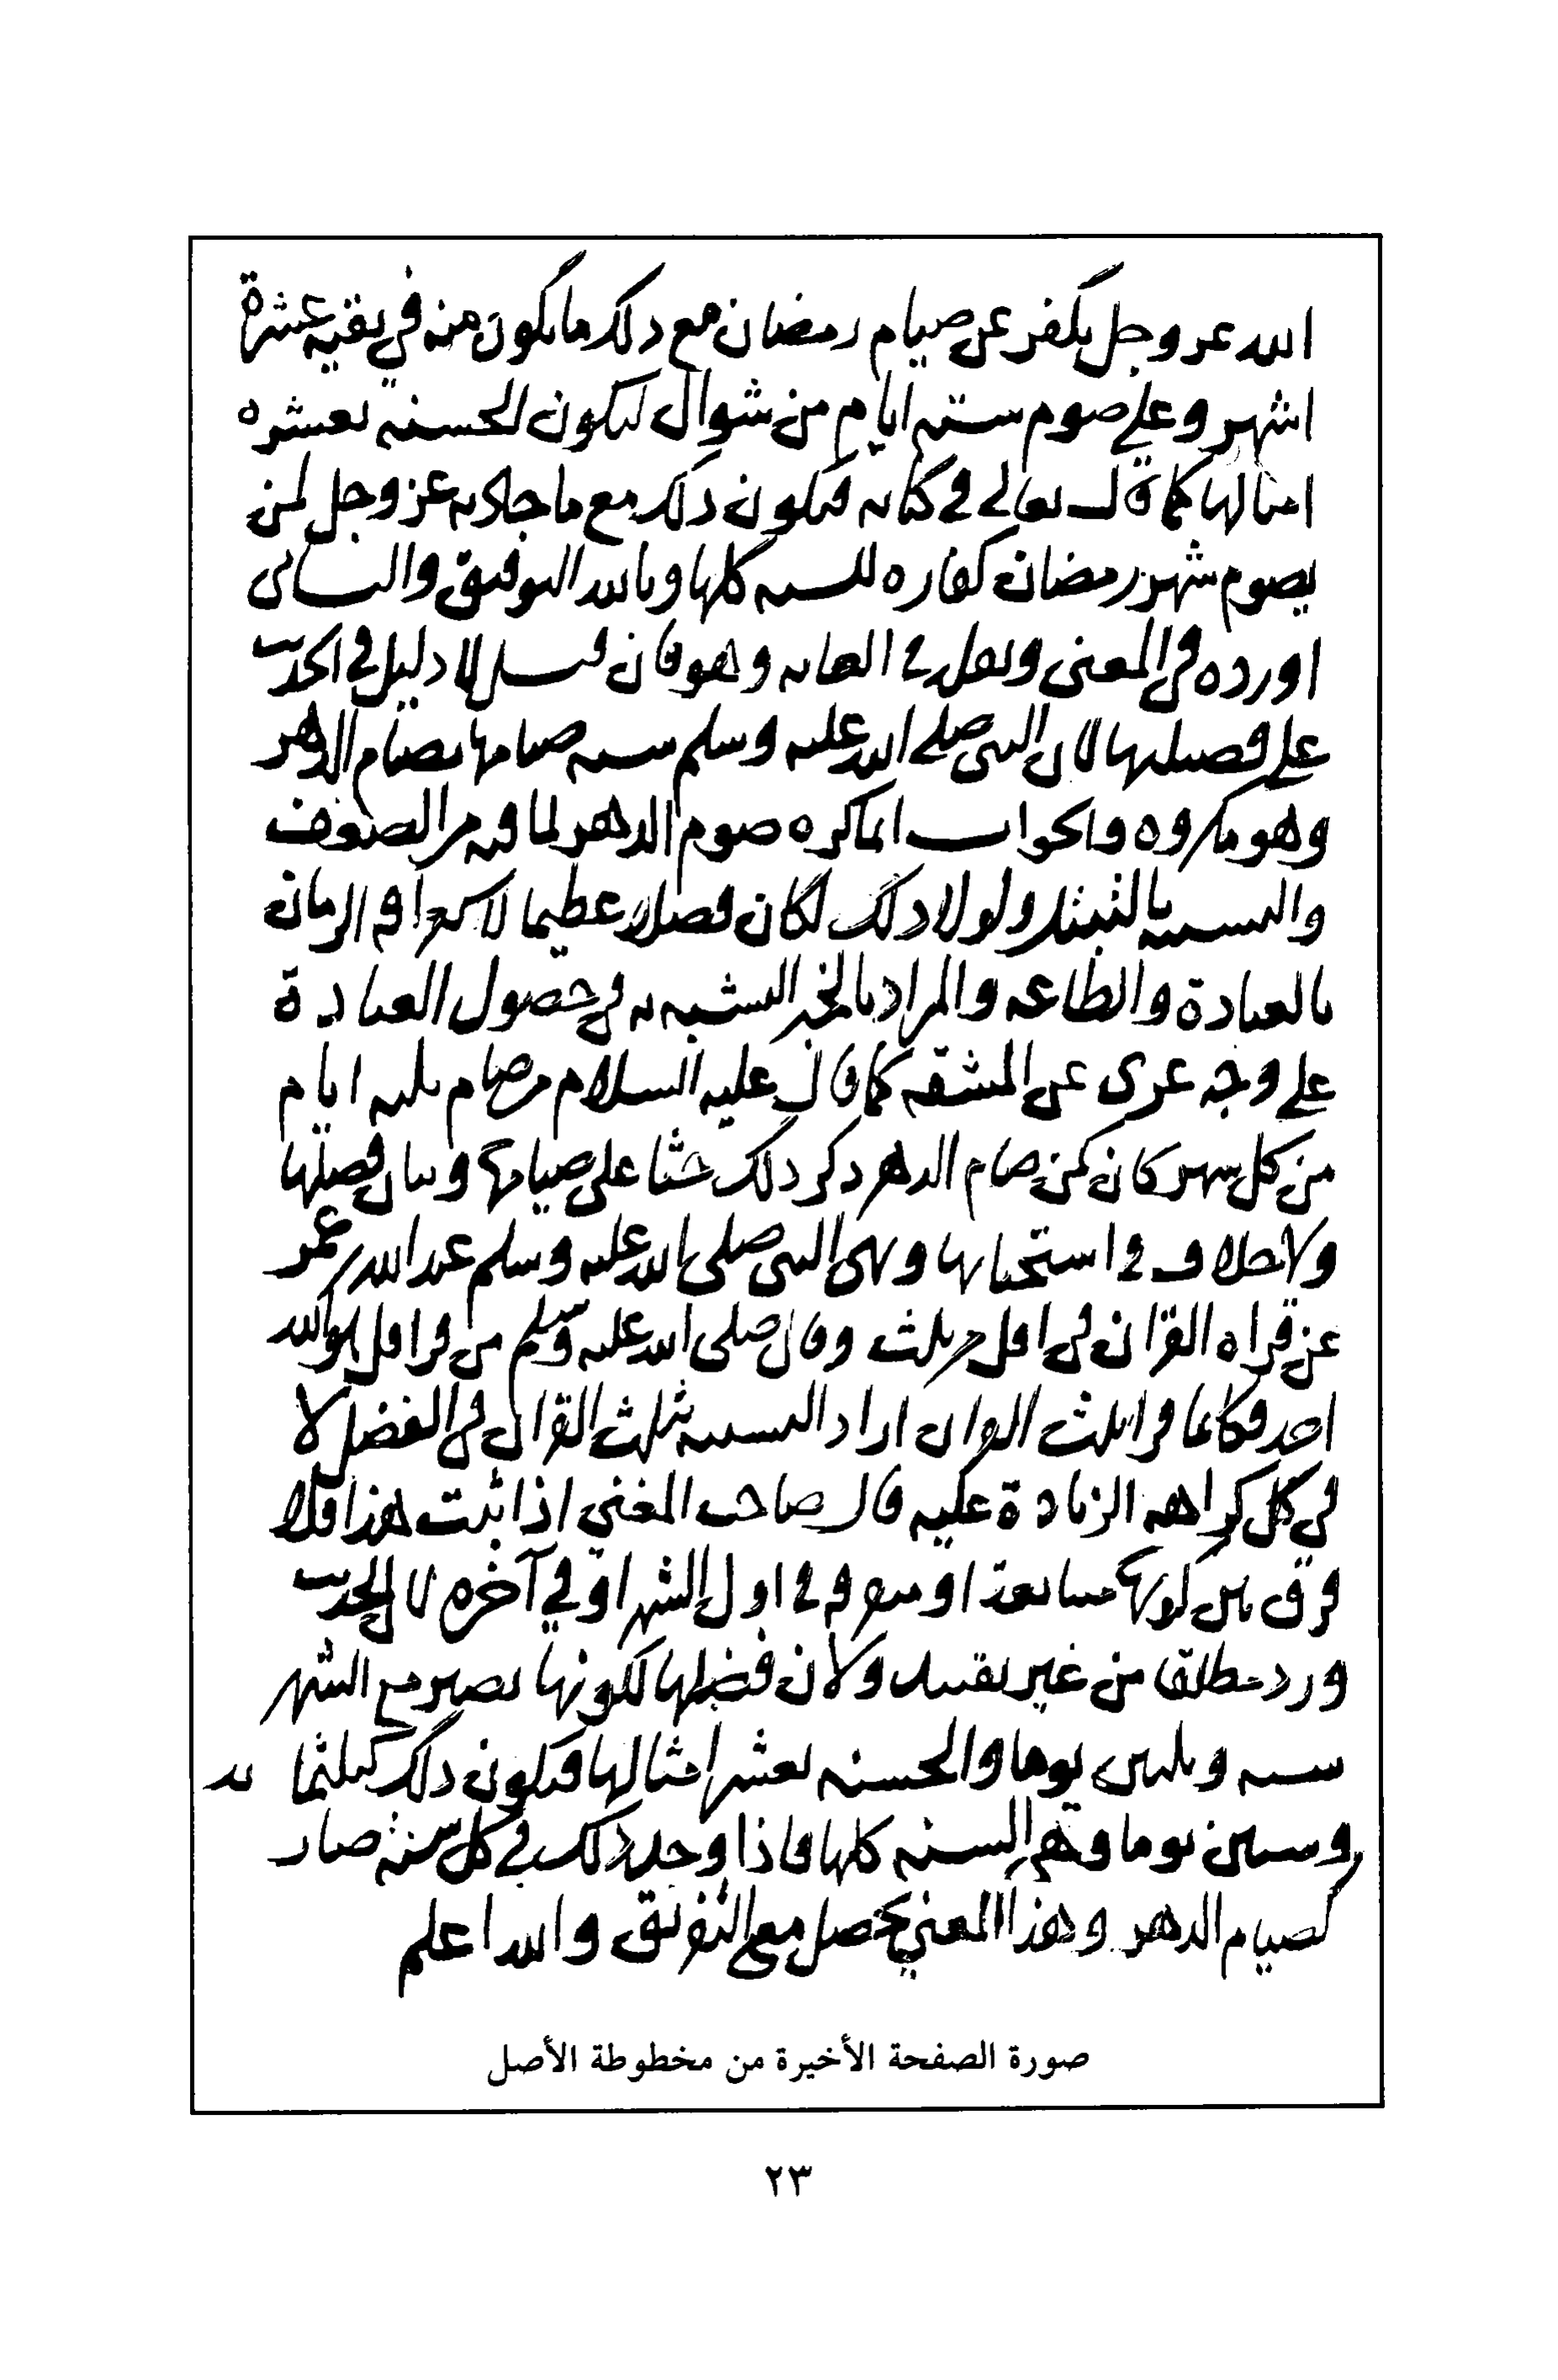 الله عز وجل يكفر عن صيام رمضان مع ذلك ما يكون منه في بقية عشرة
اشهر وعلى صوم ستة ايام من شوال ليكون الحسنة بعشرة
امثالها كما قال تعالى في كتابه فيكون ذلك مع ما جاد به عز وجل لمن
يصوم شهر رمضان كفارة للسنة كلها وبالله التوفيق والثاني
اورده في المعنى ونقل في الغاية وهو فان قيل لا دليل في الحديث
على فضيلتها لان النبي صلى الله عليه وسلم شبه صيامها بصيام الدهر
وهو مكروه والجواب انما كره صوم الدهر لما فيه من الضعف
والتشبيه بالتبتل ولولا ذلك لكان فضلا عظيما لاستغراقه الزمان
بالعبادة والطاعة والمراد بالخبر التشبيه به في حصول العبادة
على وجه عري عن المشقة كما قال عليه السلام من صام ثلثة ايام
من كل شهر كان كمن صام الدهر ذكر ذلك حثا على صيامها وبيان فضلها
ولا خلاف في استحبابها ونهى النبي صلى الله عليه وسلم عبد الله بن عمر
عن قراة القران في اقل من ثلث وقال صلى الله عليه وسلم من قرا قل هو الله
احد فكانما قرا ثلث القران اراد التشبيه بثلث القران في الفضل لا
في كل كراهة الزيادة عليه قال صاحب المغني اذا ثبت هذا فلا
فرق بين كونها متتابعة او متفرقة في اول الشهر او في آخره لان الحديث
ورد مطلقا من غير تقييد ولان فضلها لكونها تصير مع الشهر
ستة وثلثين يوما والحسنة بعشر امثالها فيكون ذلك كثلثمائة
وستين يوما وهو السنة كلها فاذا وجد ذلك في كل سنة صار
كصيام الدهر وهذا المعني يحصل مع التفريق والله اعلم
صورة الصفحة الأخيرة من مخطوطة الأصل
٢٣